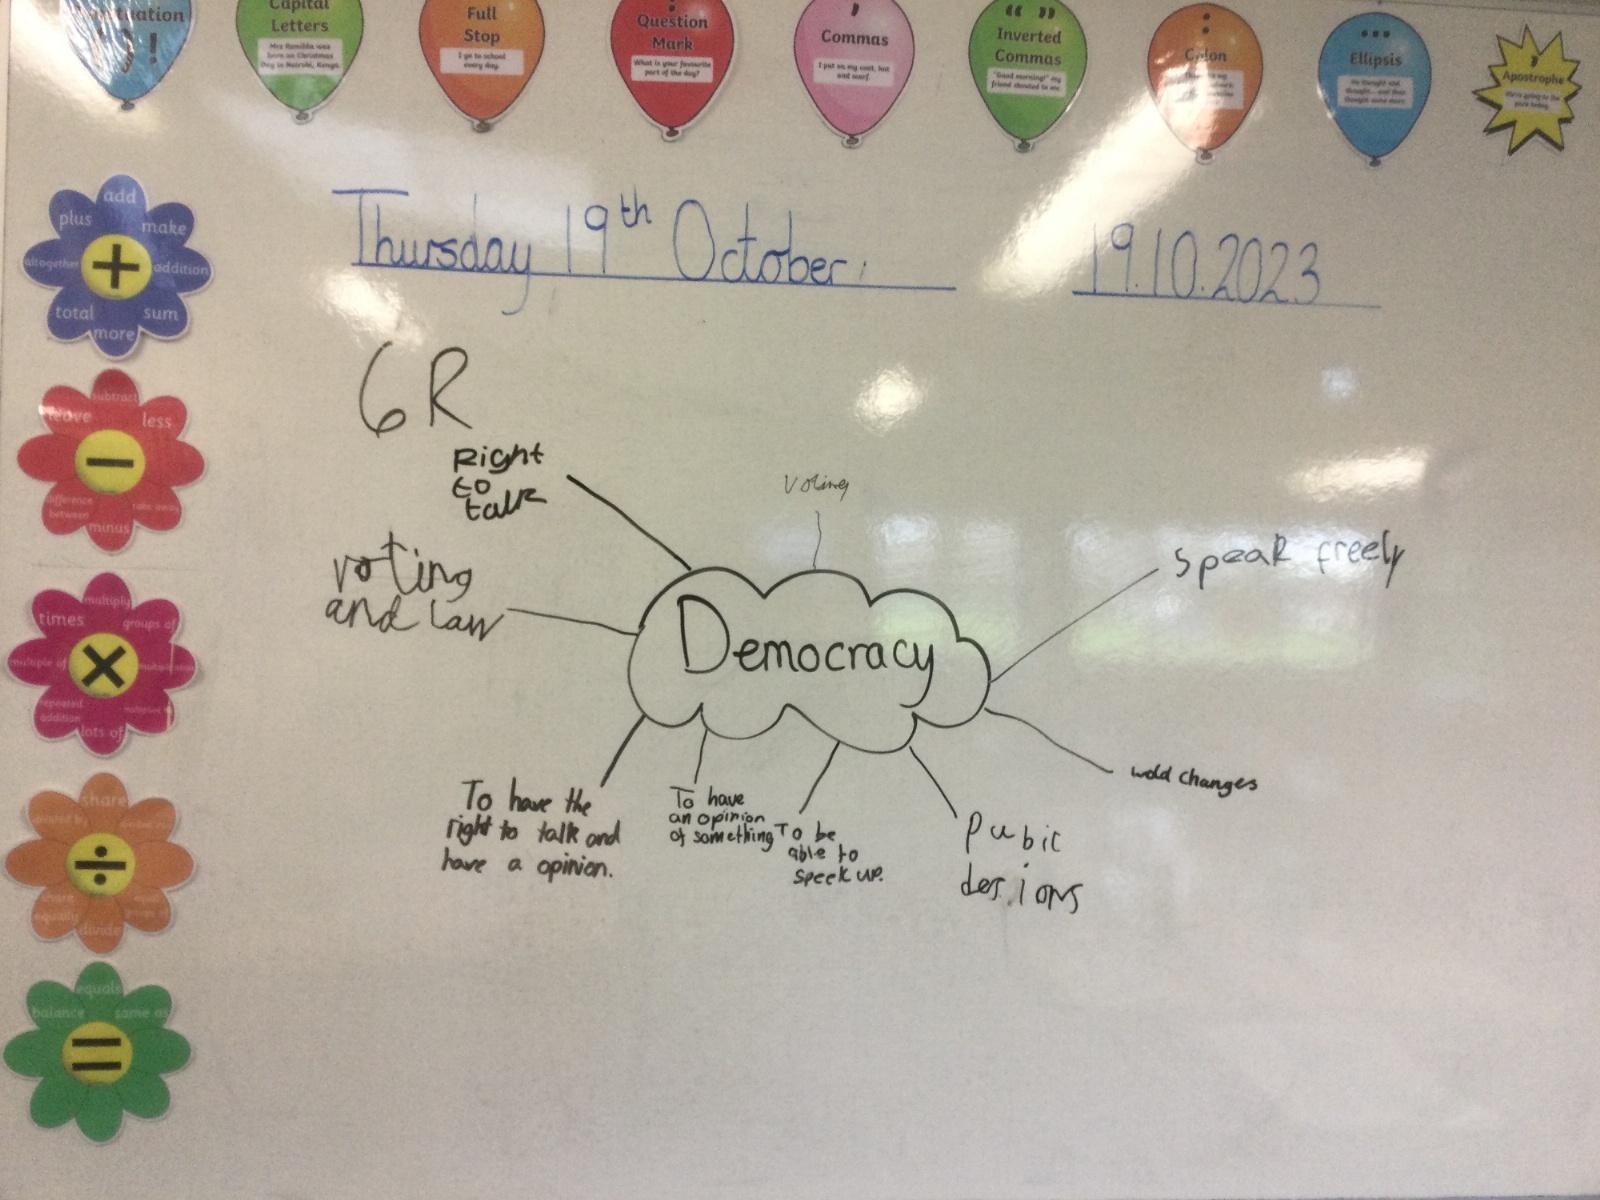 Capital
Letters
Mrs Ramilda was
born on Christmas
Day in Nairobi, Kenya.
Full
Stop
I go to school
every day.
Question
Mark
What is your favourite
part of the day?
,
Commas
I put on my coat, hat
and scarf.
“ ”
Inverted
Commas
"Good morning!" my
friend shouted to me.
:
Colon
...
Ellipsis
He thought and
thought... and then
thought some more.
Apostrophe
We're going to the
park today.
Thursday 19th October. 19.10.2023
6R
Right
to
talk
voting
voting
and law
speak freely
Democracy
wold changes
To have the
right to talk and
have a opinion.
To have
an opinion
of something
To be
able to
speek up.
pubic
desions
add
plus
make
altogether
+
addition
total
sum
more
subtract
leave
less
−
difference
between
take away
minus
multiply
times
groups of
multiple of
×
repeated
addition
lots of
share
÷
share
equally
divide
equals
balance
same as
=